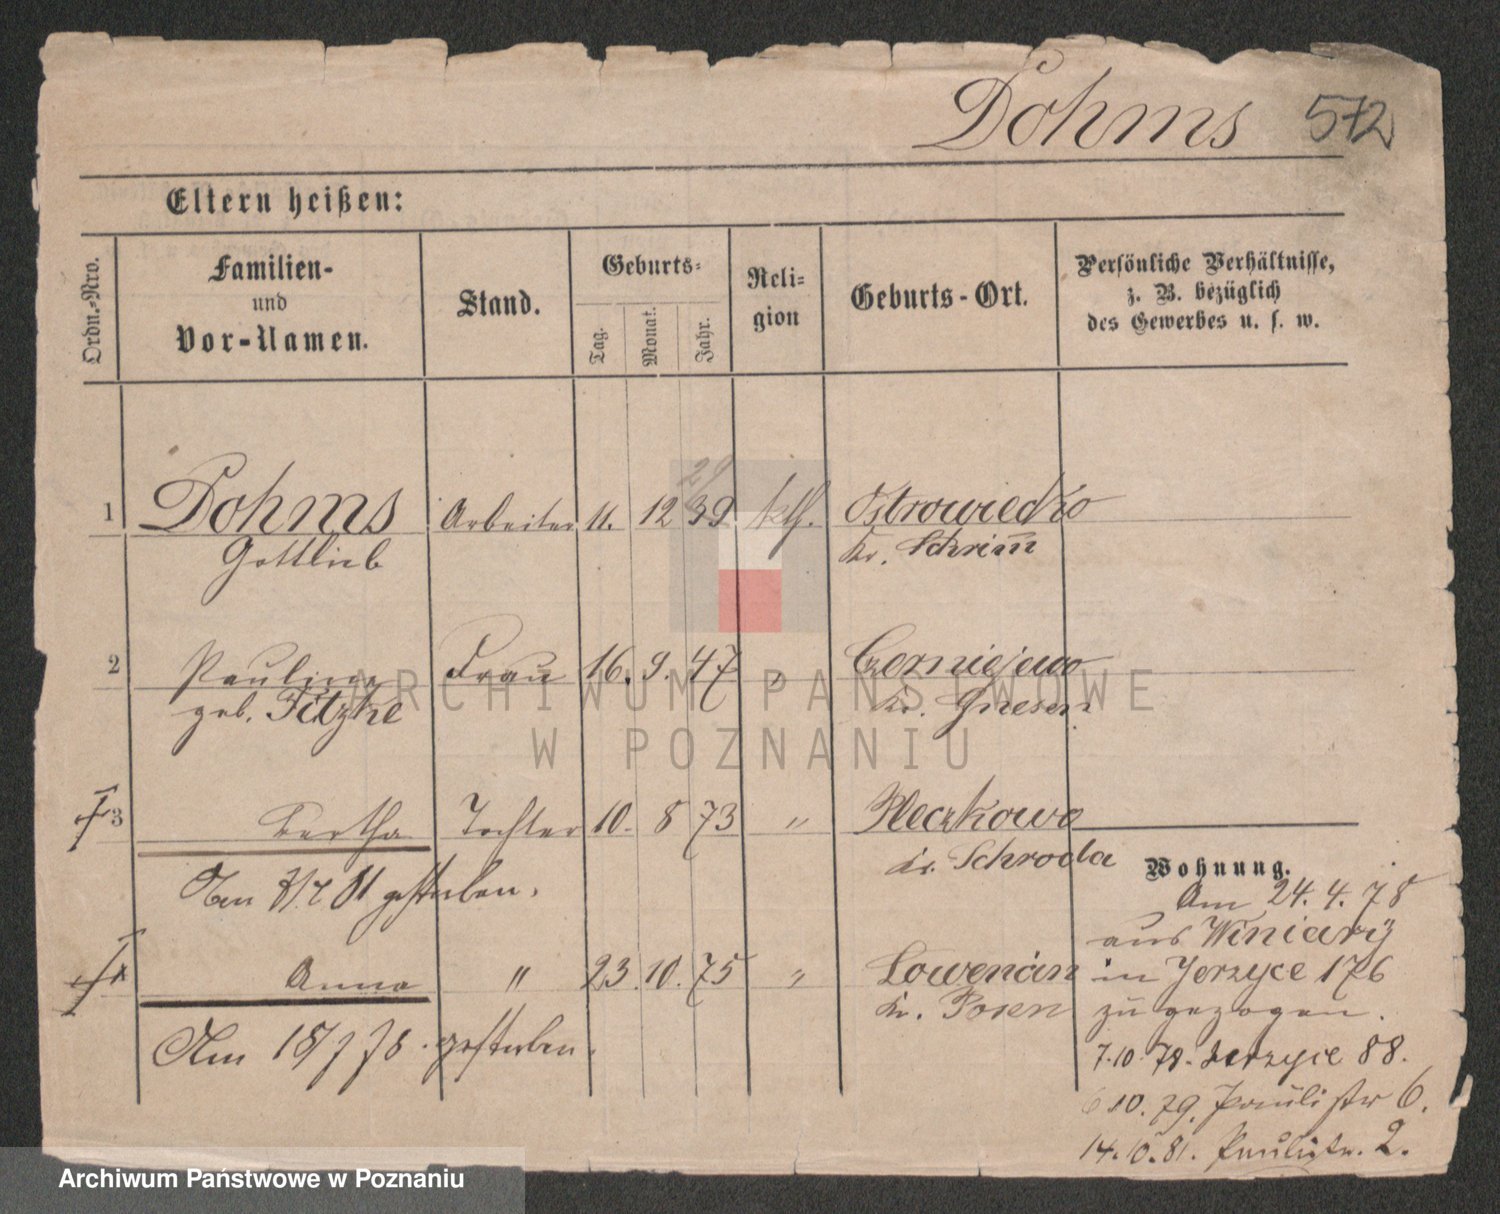 Dohms 572
Eltern heißen:
Ordn.-Nro.
Familien-
und
Vor-Namen.
Stand.
Geburts-
Tag.
Monat.
Jahr.
Reli-
gion
Geburts-Ort.
Persönliche Verhältnisse,
z. B. bezüglich
des Gewerbes u. s. w.
1 Dohms Arbeiter 11. 12 39 kth. Ostrowieczko
Gottlieb Kr. Schrim̄
2 Pauline Frau 16. 9. 47 " Czerniejewo
geb. Titzke Kr. Gnesen
3 Bertha Tochter 10. 8 73 " Pleczkowo
Kr. Schroda
Am 81 gestorben.
4 Anna " 23. 10. 75 " Lowencin
Kr. Posen
Am 18/7 78. gestorben.
Wohnung.
Am 24. 4. 78
aus Winiary
in Jerzyce 176
zu gezogen.
7.10.78. Jerzyce 88.
6 10. 79. Paulistr 6.
14.10.81. Paulistr. 2.
ARCHIWUM PAŃSTWOWE
W POZNANIU
Archiwum Państwowe w Poznaniu